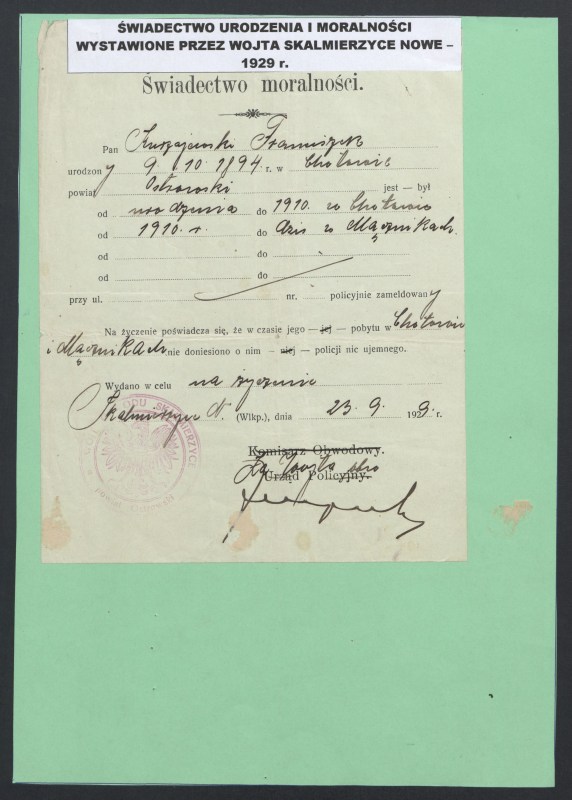 ŚWIADECTWO URODZENIA I MORALNOŚCI
WYSTAWIONE PRZEZ WOJTA SKALMIERZYCE NOWE –
1929 r.
Świadectwo moralności.
Pan Kurzajewski Franciszek
urodzony 9. 10. 1894. r. w Chotowie
powiat Ostrowski jest — był
od urodzenia do 1910. w Chotowie
od 1910. r. do dziś w Mącznikach.
od do
od do
przy ul. nr. policyjnie zameldowany
Na życzenie poświadcza się, że w czasie jego — jej — pobytu w Chotowie
i Mącznikach nie doniesiono o nim — niej — policji nic ujemnego.
Wydano w celu na życzenie
Skalmierzyce N. (Wlkp.), dnia 23. 9. 1929. r.
Komisarz Obwodowy.
Za Wójta
Urząd Policyjny.